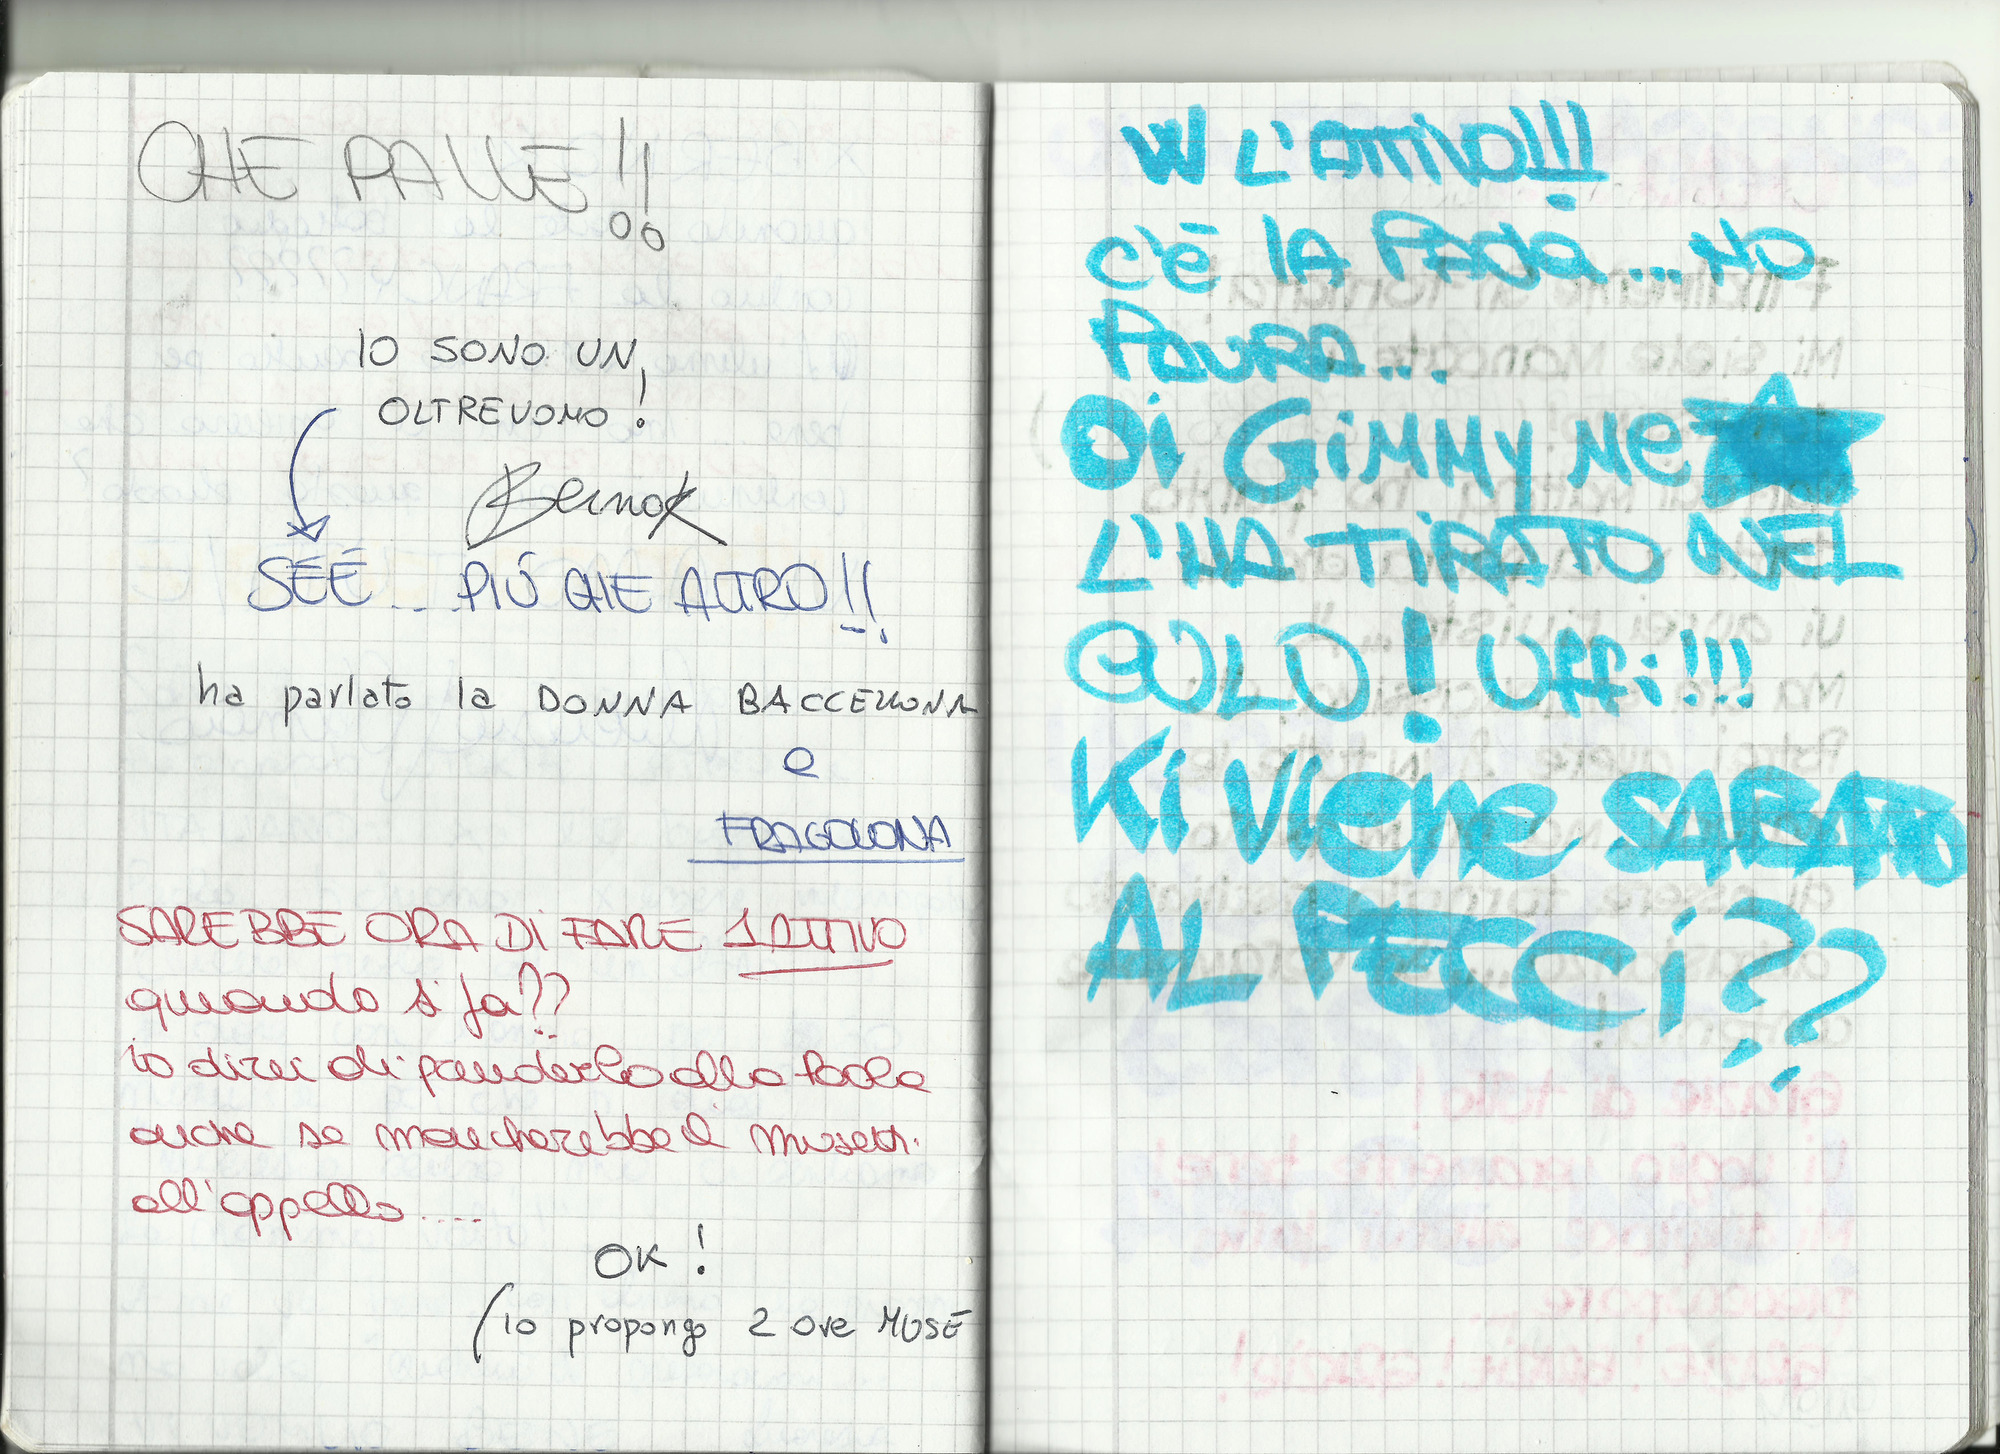 CHE PALLE!!
IO SONO UN
OLTREUOMO!
Bernok
SÉÉ... PIÚ CHE ALTRO!!
ha parlato la DONNA BACCELLONA
e
FRAGOLONA
SAREBBE ORA DI FARE 1 ATTIVO
quando si fa??
io direi di prenderlo alla Paola
anche se mancherebbe il Musetti
all'appello....
OK!
(io propongo 2 ore MUSE
W L'ATTIVO!!!
c'è LA PADA... NO
PAURA...
Oi GiMMY Me
L'HA TiRATO NEL
CULO! Uffi!!!
Ki Viene SABATO
AL PECCi??